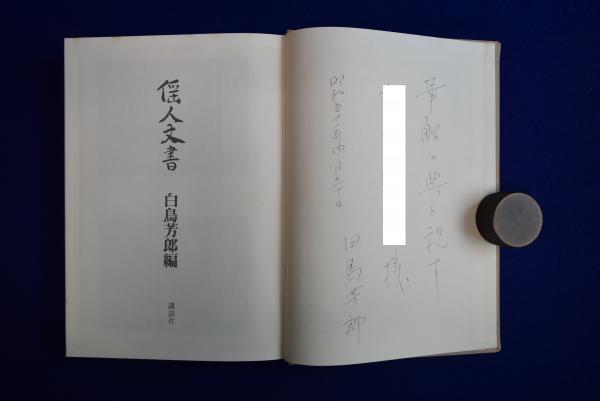 華燭の典を祝す
様
昭和五十一年四月三十日
白鳥芳郎
傜人文書
白鳥芳郎編
講談社